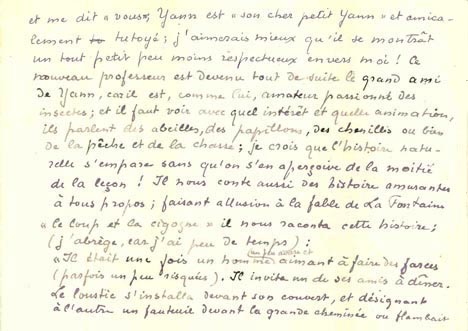 et me dit « vous », Yann est « son cher petit Yann » et amica-
lement tutoyé ; j'aimerais mieux qu'il se montrât
un tout petit peu moins respectueux envers moi ! Ce
nouveau professeur est devenu tout de suite le grand ami
de Yann, car il est, comme lui, amateur passionné des
insectes ; et il faut voir avec quel intérêt et quelle animation,
ils parlent des abeilles, des papillons, des chenilles ou bien
de la pêche et de la chasse ; je crois que l'histoire natu-
relle s'empare sans qu'on s'en aperçoive de la moitié
de la leçon ! Il nous conte aussi des histoire amusantes
à tous propos ; faisant allusion à la fable de La Fontaine
« le loup et la cigogne » il nous raconta cette histoire ;
(j'abrège, car j'ai peu de temps) :
« Il était une fois un homme aimant à faire des farces
(parfois un peu risquées). Il invita un de ses amis à dîner.
Le loustic s'installa devant son couvert, et désignant
à l'autre un fauteuil devant la grande cheminée où flambait